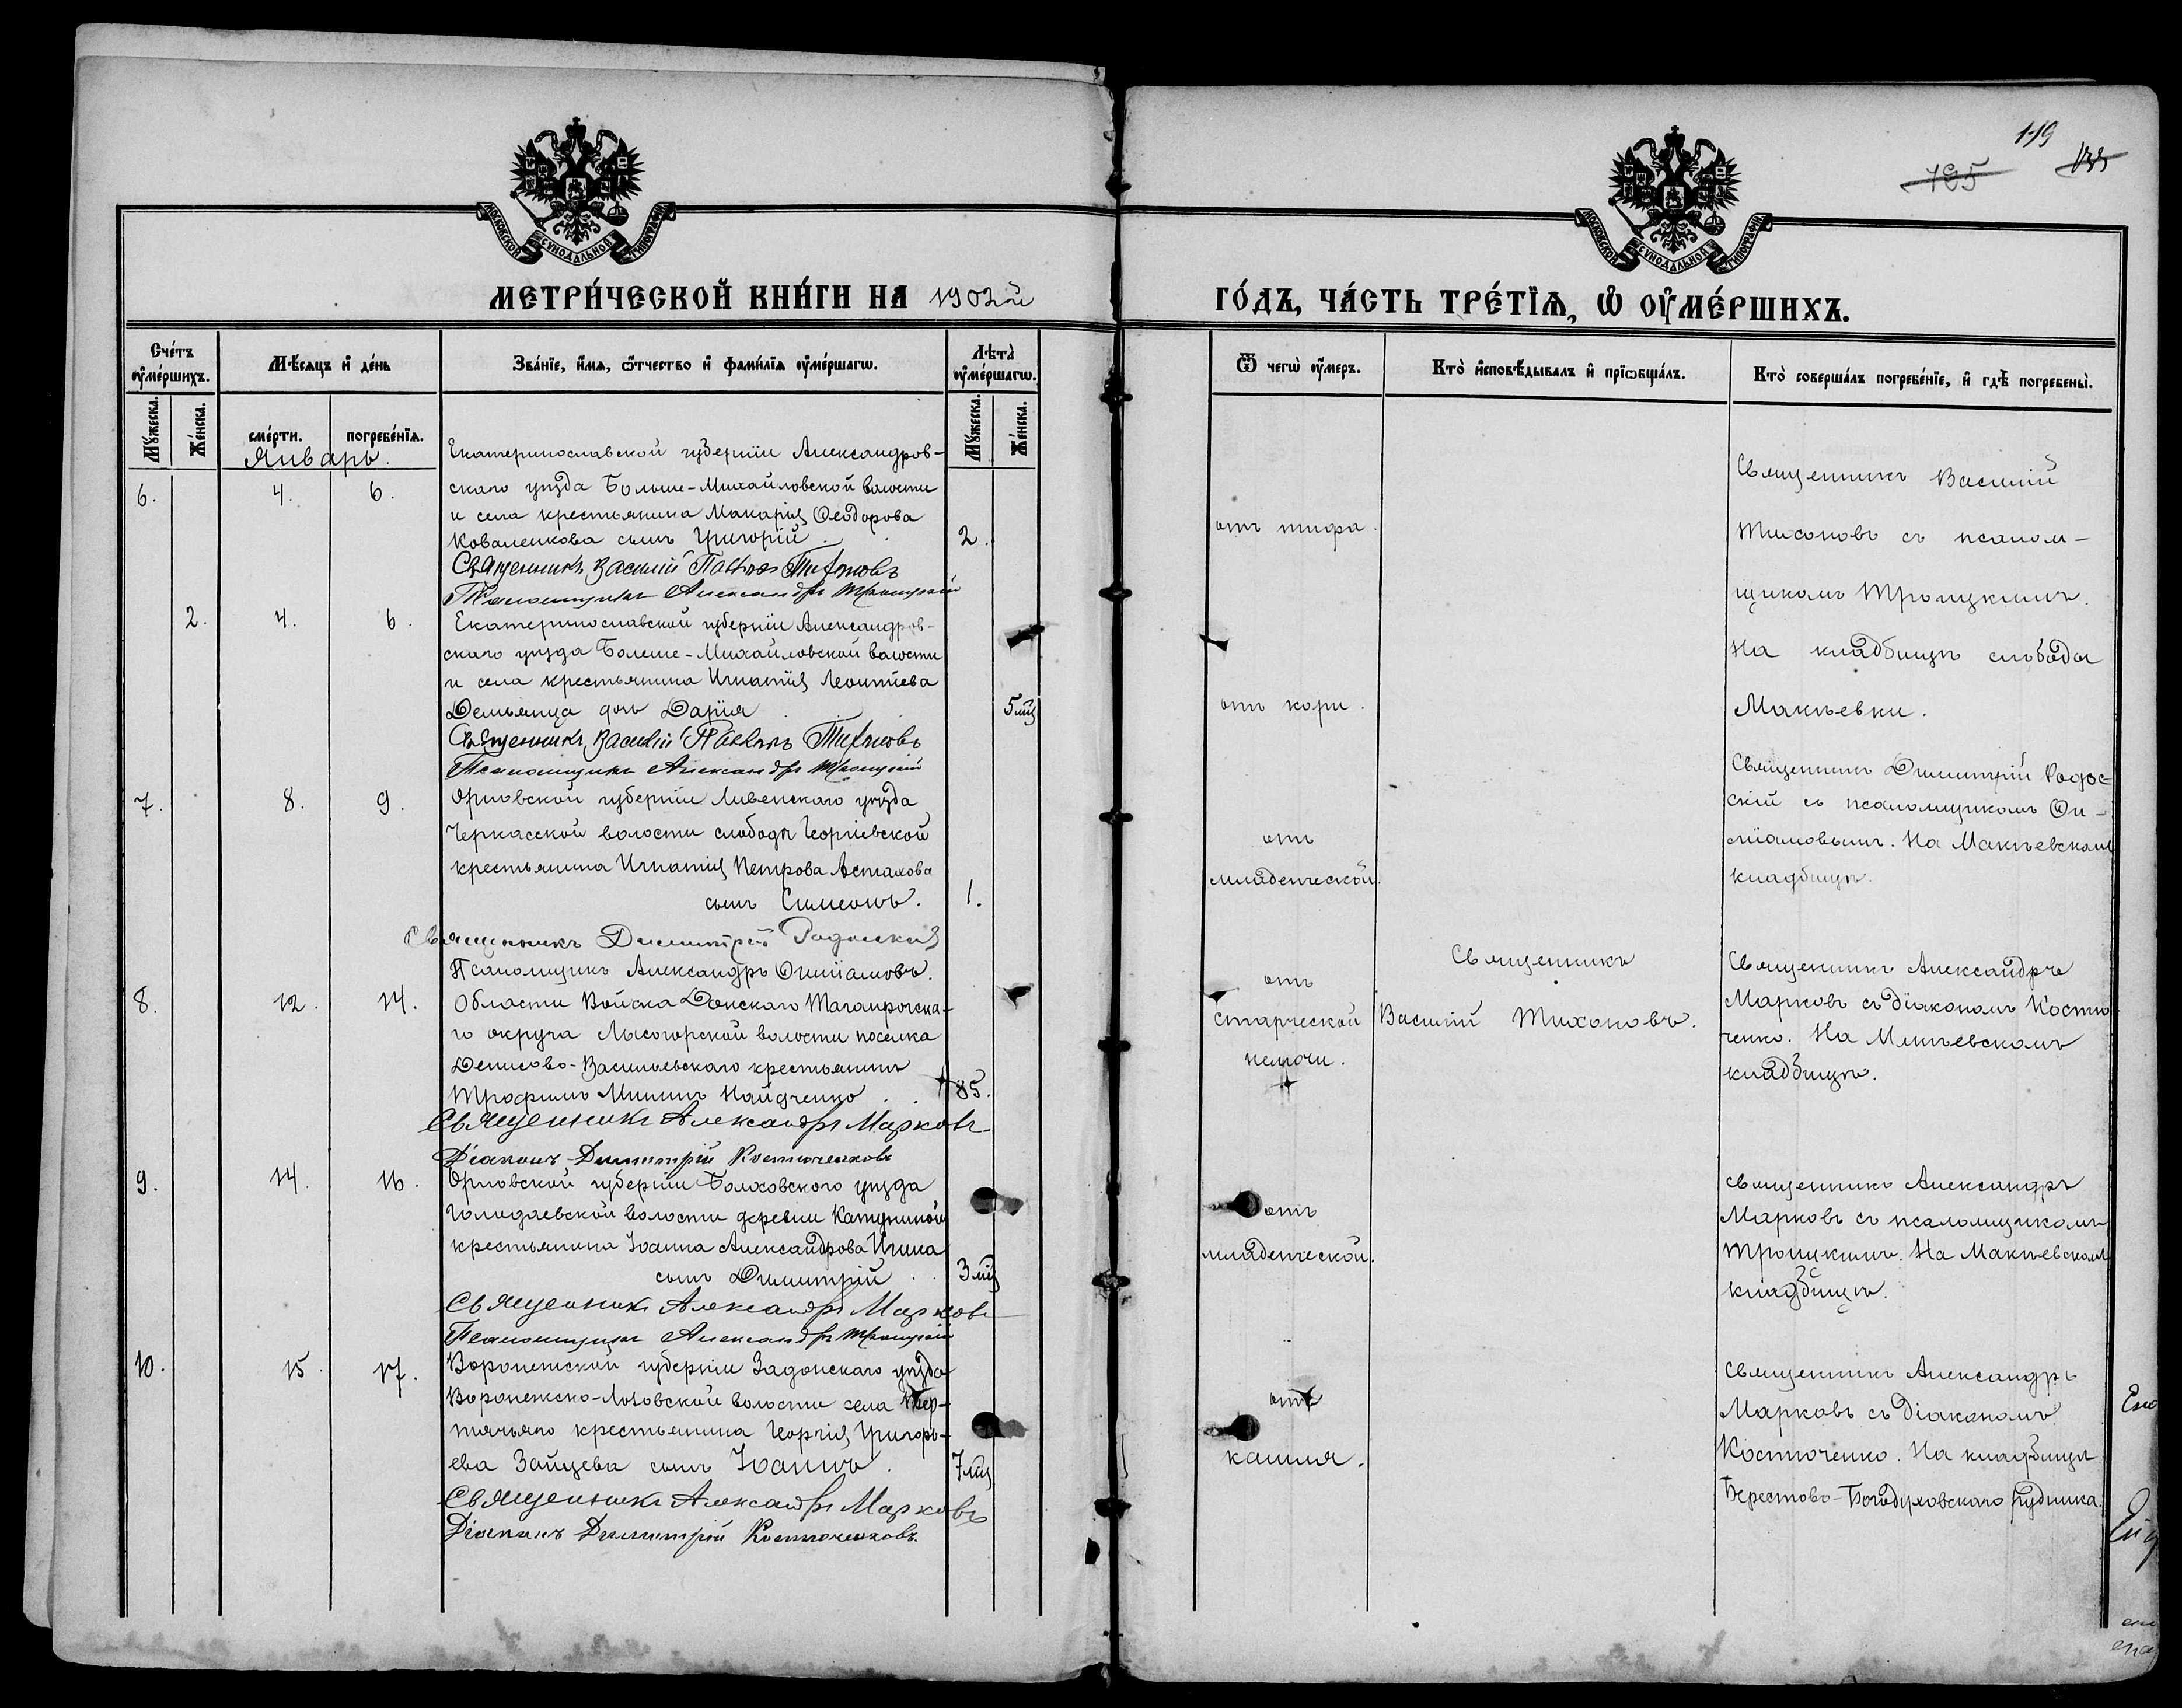 119
195
МОСКОВСКОЙ СУНОДАЛЬНОЙ ТИПОГРАФІИ
МОСКОВСКОЙ СУНОДАЛЬНОЙ ТИПОГРАФІИ
МЕТРИ́ЧЕСКОЙ КНИ́ГИ НА 1902й
ГО́ДЪ, ЧА́СТЬ ТРЕ́ТЇѦ, Ѡ҆ ОУ҆МЕ́РШИХЪ.
Сче́тъ оу҆ме́ршихъ.
Мѣ́сяцъ и҆ де́нь
Зва́нїе, и҆́мя, ѻ҆́тчество и҆ фами́лїя оу҆ме́ршагѡ.
Лѣ̀та оу҆ме́ршагѡ.
Ѿ чегѡ̀ оу҆́меръ.
Кто̀ и҆сповѣ́дывалъ и҆ прїѡбща́лъ.
Кто̀ соверша́лъ погребе́нїе, и҆ гдѣ̀ погребены̀.
Мꙋ́жеска.
Же́нска.
сме́рти.
погребе́нїя.
Мꙋ́жеска.
Же́нска.
Январь.
6. 4. 6.
Екатеринославской губерніи Александров-
скаго уѣзда Больше-Михайловской волости
и села крестьянина Макарія Ѳеодорова
Коваленкова сынъ Григорій . 2.
Священникъ Василій Павловъ Тихоновъ
Псаломщикъ Александръ Троицкій
отъ тифа.
Священникъ Василій
Тихоновъ съ псалом-
щикомъ Троицкимъ.
На кладбищѣ слободы
Макѣевки.
2. 4. 6.
Екатеринославской губерніи Александров-
скаго уѣзда Больше-Михайловской волости
и села крестьянина Игнатія Леонтіева
Демьянца дочь Дарія . . 5 мѣц
Священникъ Василій Павловъ Тихоновъ
Псаломщикъ Александръ Троицкій
отъ кори.
7. 8. 9.
Орловской губерніи Ливенскаго уѣзда
Черкасской волости слободы Георгіевской
крестьянина Игнатія Петрова Астахова
сынъ Симеонъ. 1.
Священникъ Димитрій Родосскій
Псаломщикъ Александръ
отъ
младенческой.
Священникъ Димитрій Родос-
скій съ псаломщикомъ
На Макѣевскомъ
кладбищѣ.
8. 12. 14.
Области Войска Донскаго Таганрогска-
го округа Лысогорской волости поселка
Денисово-Васильевскаго крестьянинъ
Трофимъ Мининъ Найдченко . . 85.
Священникъ Александръ Марковъ
Діаконъ Димитрій Костюченковъ
отъ
старческой
немочи.
Священникъ
Василій Тихоновъ.
Священникъ Александръ
Марковъ съ діакономъ Костю
ченко. На Макѣевскомъ
кладбищѣ.
9. 14. 16.
Орловской губерніи Болховского уѣзда
волости деревни
крестьянина Іоанна Александрова
сынъ Димитрій . . 3 мѣц
Священникъ Александръ Марковъ
Псаломщикъ Александръ Троицкій
отъ
младенческой.
Священникъ Александръ
Марковъ съ псаломщикомъ
Троицкимъ. На Макѣевскомъ
кладбищѣ.
10. 15. 17.
Воронежской губерніи Задонскаго уѣзда
Воронежско-Лозовской волости села Вер-
тячьяго крестьянина Георгія Григорь-
ева Зайцева сынъ Іоаннъ . 7 мѣц
Священникъ Александръ Марковъ
Діаконъ Димитрій Костюченковъ.
отъ
кашля.
Священникъ Александръ
Марковъ съ діакономъ
Костюченко. На кладбищѣ
Берестово-Богодуховскаго рудника.